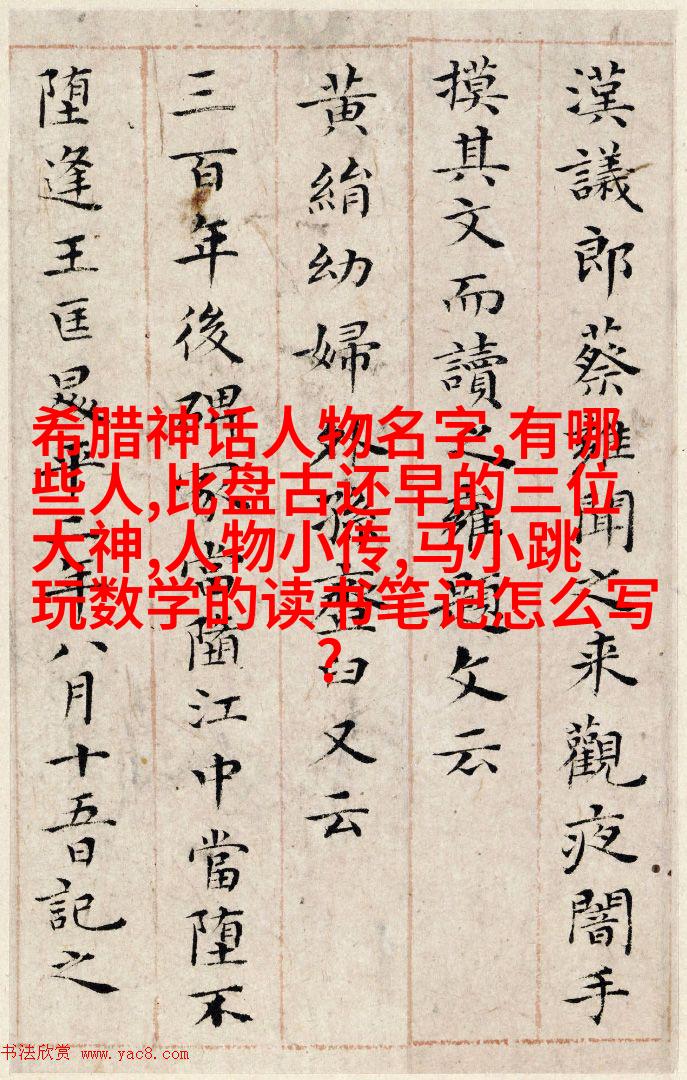 漢議郎蔡雍聞之来觀夜闇手
摸其文而讀之雍題文云
黄絹幼婦外孫臼又云
三百年後碑冢當堕江中當堕不
堕逢王匡昇平二年八月十五日記之
希腊神话人物名字,有哪
些人,比盘古还早的三位
大神,人物小传,马小跳
玩数学的读书笔记怎么写
?
书法欣赏 www.yac8.com